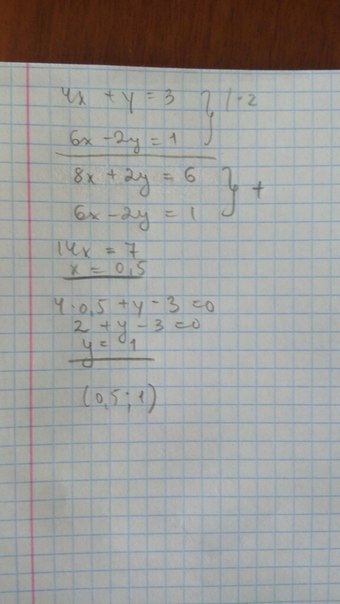 4x + y = 3 } | · 2
6x - 2y = 1
8x + 2y = 6 } +
6x - 2y = 1
14x = 7
x = 0,5
4 · 0,5 + y - 3 = 0
2 + y - 3 = 0
y = 1
(0,5 ; 1)